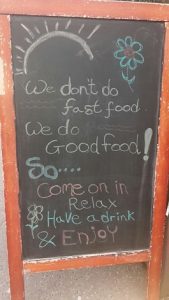 We don't do
fast food.
We do
Good food!
So....
Come on in
Relax
Have a drink
& ENJOY